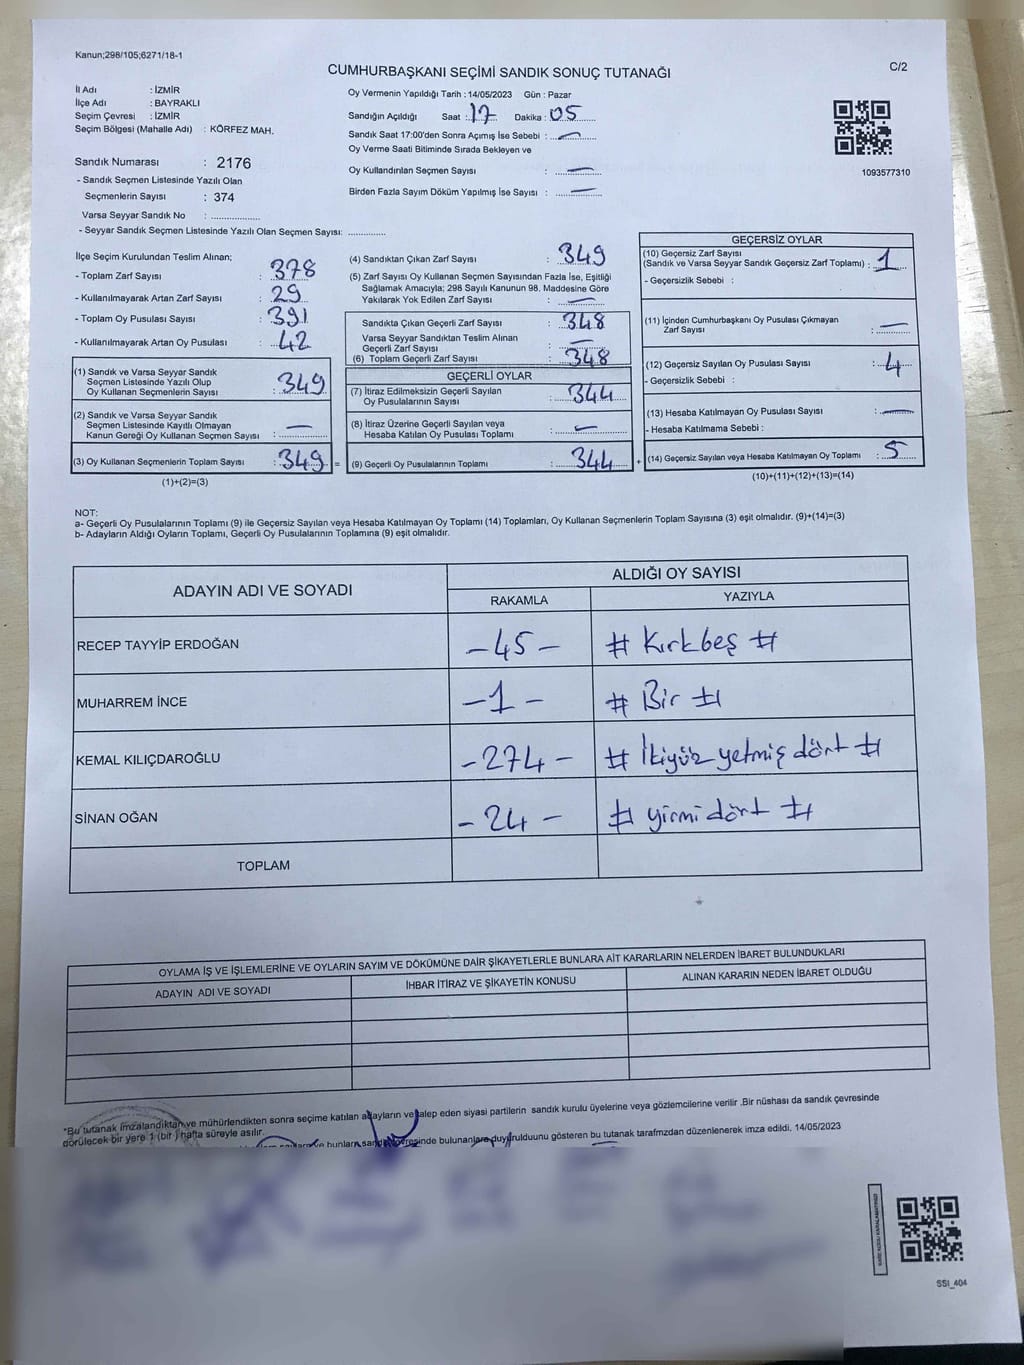 Kanun;298/105;6271/18-1
C/2
CUMHURBAŞKANI SEÇİMİ SANDIK SONUÇ TUTANAĞI
İl Adı : İZMİR
İlçe Adı : BAYRAKLI
Seçim Çevresi : İZMİR
Seçim Bölgesi (Mahalle Adı) : KÖRFEZ MAH.
Sandık Numarası : 2176
- Sandık Seçmen Listesinde Yazılı Olan
Seçmenlerin Sayısı : 374
Varsa Seyyar Sandık No : ................
- Seyyar Sandık Seçmen Listesinde Yazılı Olan Seçmen Sayısı: ............
Oy Vermenin Yapıldığı Tarih : 14/05/2023 Gün : Pazar
Sandığın Açıldığı Saat : 17 Dakika : 05
Sandık Saat 17:00'den Sonra Açımış İse Sebebi : —
Oy Verme Saati Bitiminde Sırada Bekleyen ve
Oy Kullandırılan Seçmen Sayısı : —
Birden Fazla Sayım Döküm Yapılmış İse Sayısı : —
1093577310
İlçe Seçim Kurulundan Teslim Alınan;
- Toplam Zarf Sayısı : 378
- Kullanılmayarak Artan Zarf Sayısı : 29
- Toplam Oy Pusulası Sayısı : 391
- Kullanılmayarak Artan Oy Pusulası : 42
(1) Sandık ve Varsa Seyyar Sandık
Seçmen Listesinde Yazılı Olup
Oy Kullanan Seçmenlerin Sayısı : 349
(2) Sandık ve Varsa Seyyar Sandık
Seçmen Listesinde Kayıtlı Olmayan
Kanun Gereği Oy Kullanan Seçmen Sayısı : —
(3) Oy Kullanan Seçmenlerin Toplam Sayısı : 349 =
(1)+(2)=(3)
(4) Sandıktan Çıkan Zarf Sayısı : 349
(5) Zarf Sayısı Oy Kullanan Seçmen Sayısından Fazla İse, Eşitliği
Sağlamak Amacıyla; 298 Sayılı Kanunun 98. Maddesine Göre
Yakılarak Yok Edilen Zarf Sayısı : —
Sandıkta Çıkan Geçerli Zarf Sayısı : 348
Varsa Seyyar Sandıktan Teslim Alınan
Geçerli Zarf Sayısı : —
(6) Toplam Geçerli Zarf Sayısı : 348
GEÇERLİ OYLAR
(7) İtiraz Edilmeksizin Geçerli Sayılan
Oy Pusulalarının Sayısı : 344
(8) İtiraz Üzerine Geçerli Sayılan veya
Hesaba Katılan Oy Pusulası Toplamı : —
(9) Geçerli Oy Pusulalarının Toplamı : 344 +
GEÇERSİZ OYLAR
(10) Geçersiz Zarf Sayısı
(Sandık ve Varsa Seyyar Sandık Geçersiz Zarf Toplamı) : 1
- Geçersizlik Sebebi :
(11) İçinden Cumhurbaşkanı Oy Pusulası Çıkmayan
Zarf Sayısı : —
(12) Geçersiz Sayılan Oy Pusulası Sayısı : 4
- Geçersizlik Sebebi :
(13) Hesaba Katılmayan Oy Pusulası Sayısı : —
- Hesaba Katılmama Sebebi :
(14) Geçersiz Sayılan veya Hesaba Katılmayan Oy Toplamı : 5
(10)+(11)+(12)+(13)=(14)
NOT:
a- Geçerli Oy Pusulalarının Toplamı (9) ile Geçersiz Sayılan veya Hesaba Katılmayan Oy Toplamı (14) Toplamları, Oy Kullanan Seçmenlerin Toplam Sayısına (3) eşit olmalıdır. (9)+(14)=(3)
b- Adayların Aldığı Oyların Toplamı, Geçerli Oy Pusulalarının Toplamına (9) eşit olmalıdır.
ADAYIN ADI VE SOYADI
ALDIĞI OY SAYISI
RAKAMLA YAZIYLA
RECEP TAYYİP ERDOĞAN -45- # Kırkbeş #
MUHARREM İNCE -1- # Bir #
KEMAL KILIÇDAROĞLU -274- # İkiyüz yetmiş dört #
SİNAN OĞAN -24- # yirmi dört #
TOPLAM
OYLAMA İŞ VE İŞLEMLERİNE VE OYLARIN SAYIM VE DÖKÜMÜNE DAİR ŞİKAYETLERLE BUNLARA AİT KARARLARIN NELERDEN İBARET BULUNDUKLARI
ADAYIN ADI VE SOYADI İHBAR İTİRAZ VE ŞİKAYETİN KONUSU ALINAN KARARIN NEDEN İBARET OLDUĞU
"Bu tutanak imzalandıktan ve mühürlendikten sonra seçime katılan adayların ve talep eden siyasi partilerin sandık kurulu üyelerine veya gözlemcilerine verilir .Bir nüshası da sandık çevresinde
görülecek bir yere 1 (bir ) hafta süreyle asılır.
bunların sandık çevresinde bulunanlara duyurulduunu gösteren bu tutanak tarafmzdan düzenlenerek imza edildi. 14/05/2023
SSI_404